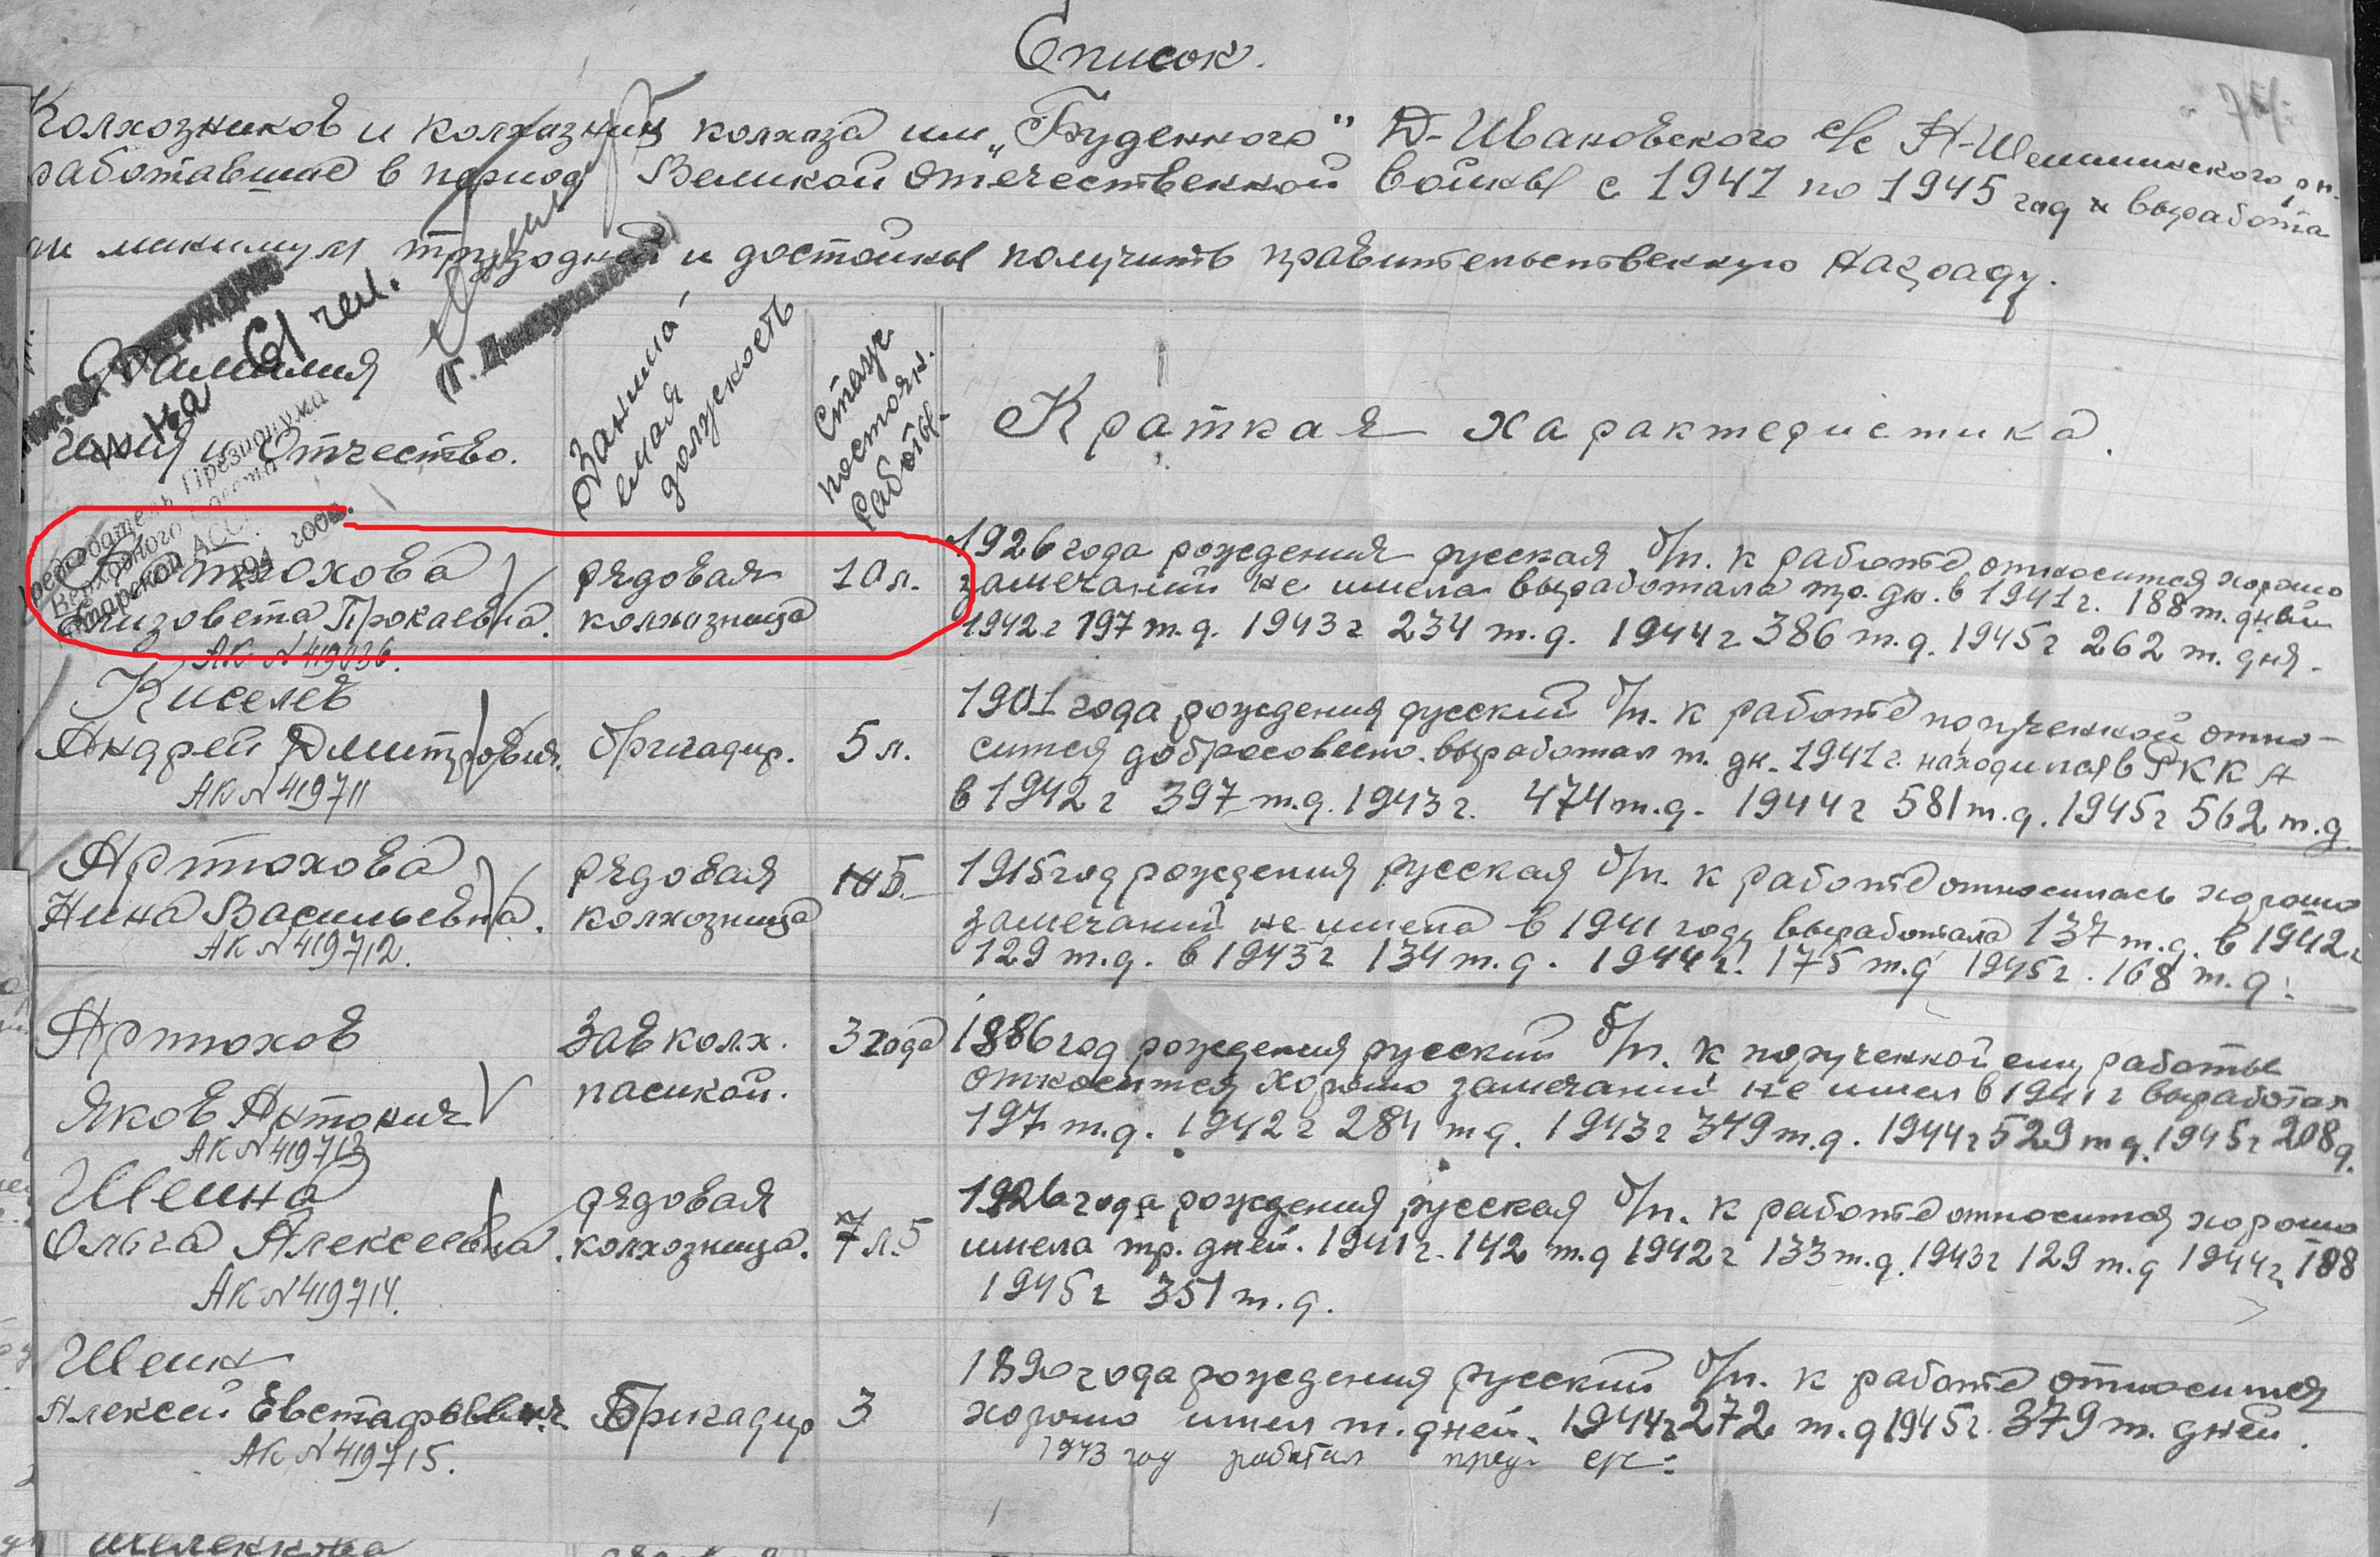 Список.
Колхозников и колхозниц колхоза им „Буденного" Д-Ивановского с/с Н-Шешминского рн.
работавшие в период Великой Отечественной войны с 1941 по 1945 год и выработа
ли минимум трудодней и достойны получить правительственную награду.
Фамилия
имя и Отчество.
Занима-
емая
должность
Стаж
постоян.
работы.
Краткая характеристика.
на 61 чел.
Артюхова
Елизовета Прокаевна.
АК N 419036.
рядовая
колхозница
10 л.
1926 года рождения русская б/п. к работе относится хорошо
замечаний не имела выработала тр. дн. в 1941 г. 188 т. дней
1942 г 197 т.д. 1943 г 234 т.д. 1944 г 386 т.д. 1945 г 262 т. дня.
Киселев
Андрей Дмитрович.
АК N 419711
бригадир.
5 л.
1901 года рождения русский б/п. к работе порученной отно-
сится добросовестно. выработал т. дн. 1941 г. находился в РККА
в 1942 г 397 т.д. 1943 г. 474 т.д. 1944 г 581 т.д. 1945 г 562 т.д
Артюхова
Нина Васильевна.
АК N 419712.
рядовая
колхозница
1915 год рождения русская б/п. к работе относилась хорошо
замечаний не имела в 1941 году выработала 137 т.д. в 1942 г
129 т.д. в 1943 г 134 т.д. 1944 г. 175 т.д 1945 г. 168 т.д.
Артюхов
Яков Антонич
АК N 419713
Зав колх.
пасикой.
3 года
1886 год рождения русский б/п. к порученной ему работы
относится хорошо замечаний не имел в 1941 г выработал
197 т.д. 1942 г 284 т д. 1943 г 349 т.д. 1944 г 529 т д. 1945 г 208 д.
Шеина
Ольга Алексеевна.
АК N 419714.
рядовая
колхозница.
7 л.
1926 года рождения русская б/п. к работе относится хорошо
имела тр. дней. 1941 г. 142 т.д 1942 г 133 т.д. 1943 г 129 т.д 1944 г. 188
1945 г 351 т.д.
Шеин
Алексей Евстафьевич
АК N 419715.
Бригадир
3
1890 года рождения русский б/п. к работе относится
хорошо имел т. дней. 1944 г 272 т.д 1945 г. 379 т. дней.
1943 год работал пред.